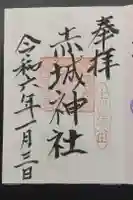 奉拝
赤城神社
令和六年一月三日